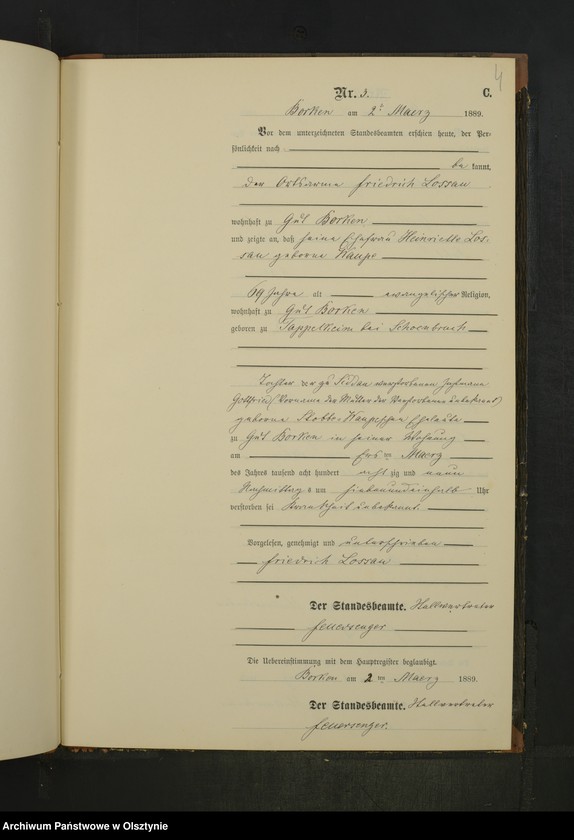 4
Nr. 3. C.
Borken am 2t Maerz 1889.
Vor dem unterzeichneten Standesbeamten erschien heute, der Per-
sönlichkeit nach
be kannt,
der Ortsarme Friedrich Lossau
wohnhaft zu Gut Borken
und zeigte an, daß seine Ehefrau Heinriette Los-
sau geborene Kaups
69 Jahre alt evangelischer Religion,
wohnhaft zu Gut Borken
geboren zu Tappelkeim bei Schoenbruch
Tochter der zu verstorbenen
Gottfried (Vorname der Mutter der Verstorbenen unbekannt)
geborne Eheleute
zu Gut Borken in seiner Wohnung
am Maerz
des Jahres tausend acht hundert acht zig und neun
Nachmittag s um siebenundeinhalb Uhr
verstorben sei Krankheit unbekannt.
Vorgelesen, genehmigt und unterschrieben
Friedrich Lossau
Der Standesbeamte.
Feuersenger
Die Uebereinstimmung mit dem Hauptregister beglaubigt.
Borken am 2ten Maerz 1889.
Der Standesbeamte.
Feuersenger.
Archiwum Państwowe w Olsztynie